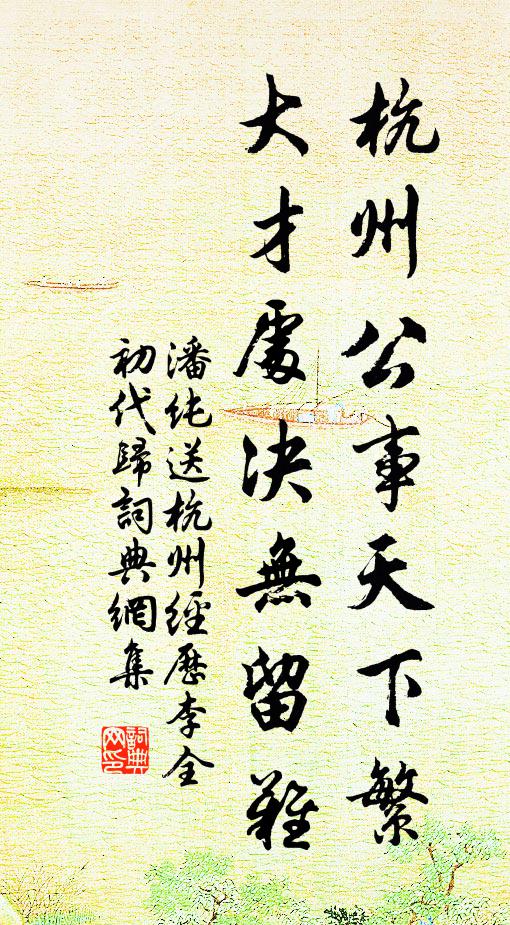 杭州公事天下繁
大才處決無留難
潘純送杭州經歷李全
初代歸詞典網集
詞典网印